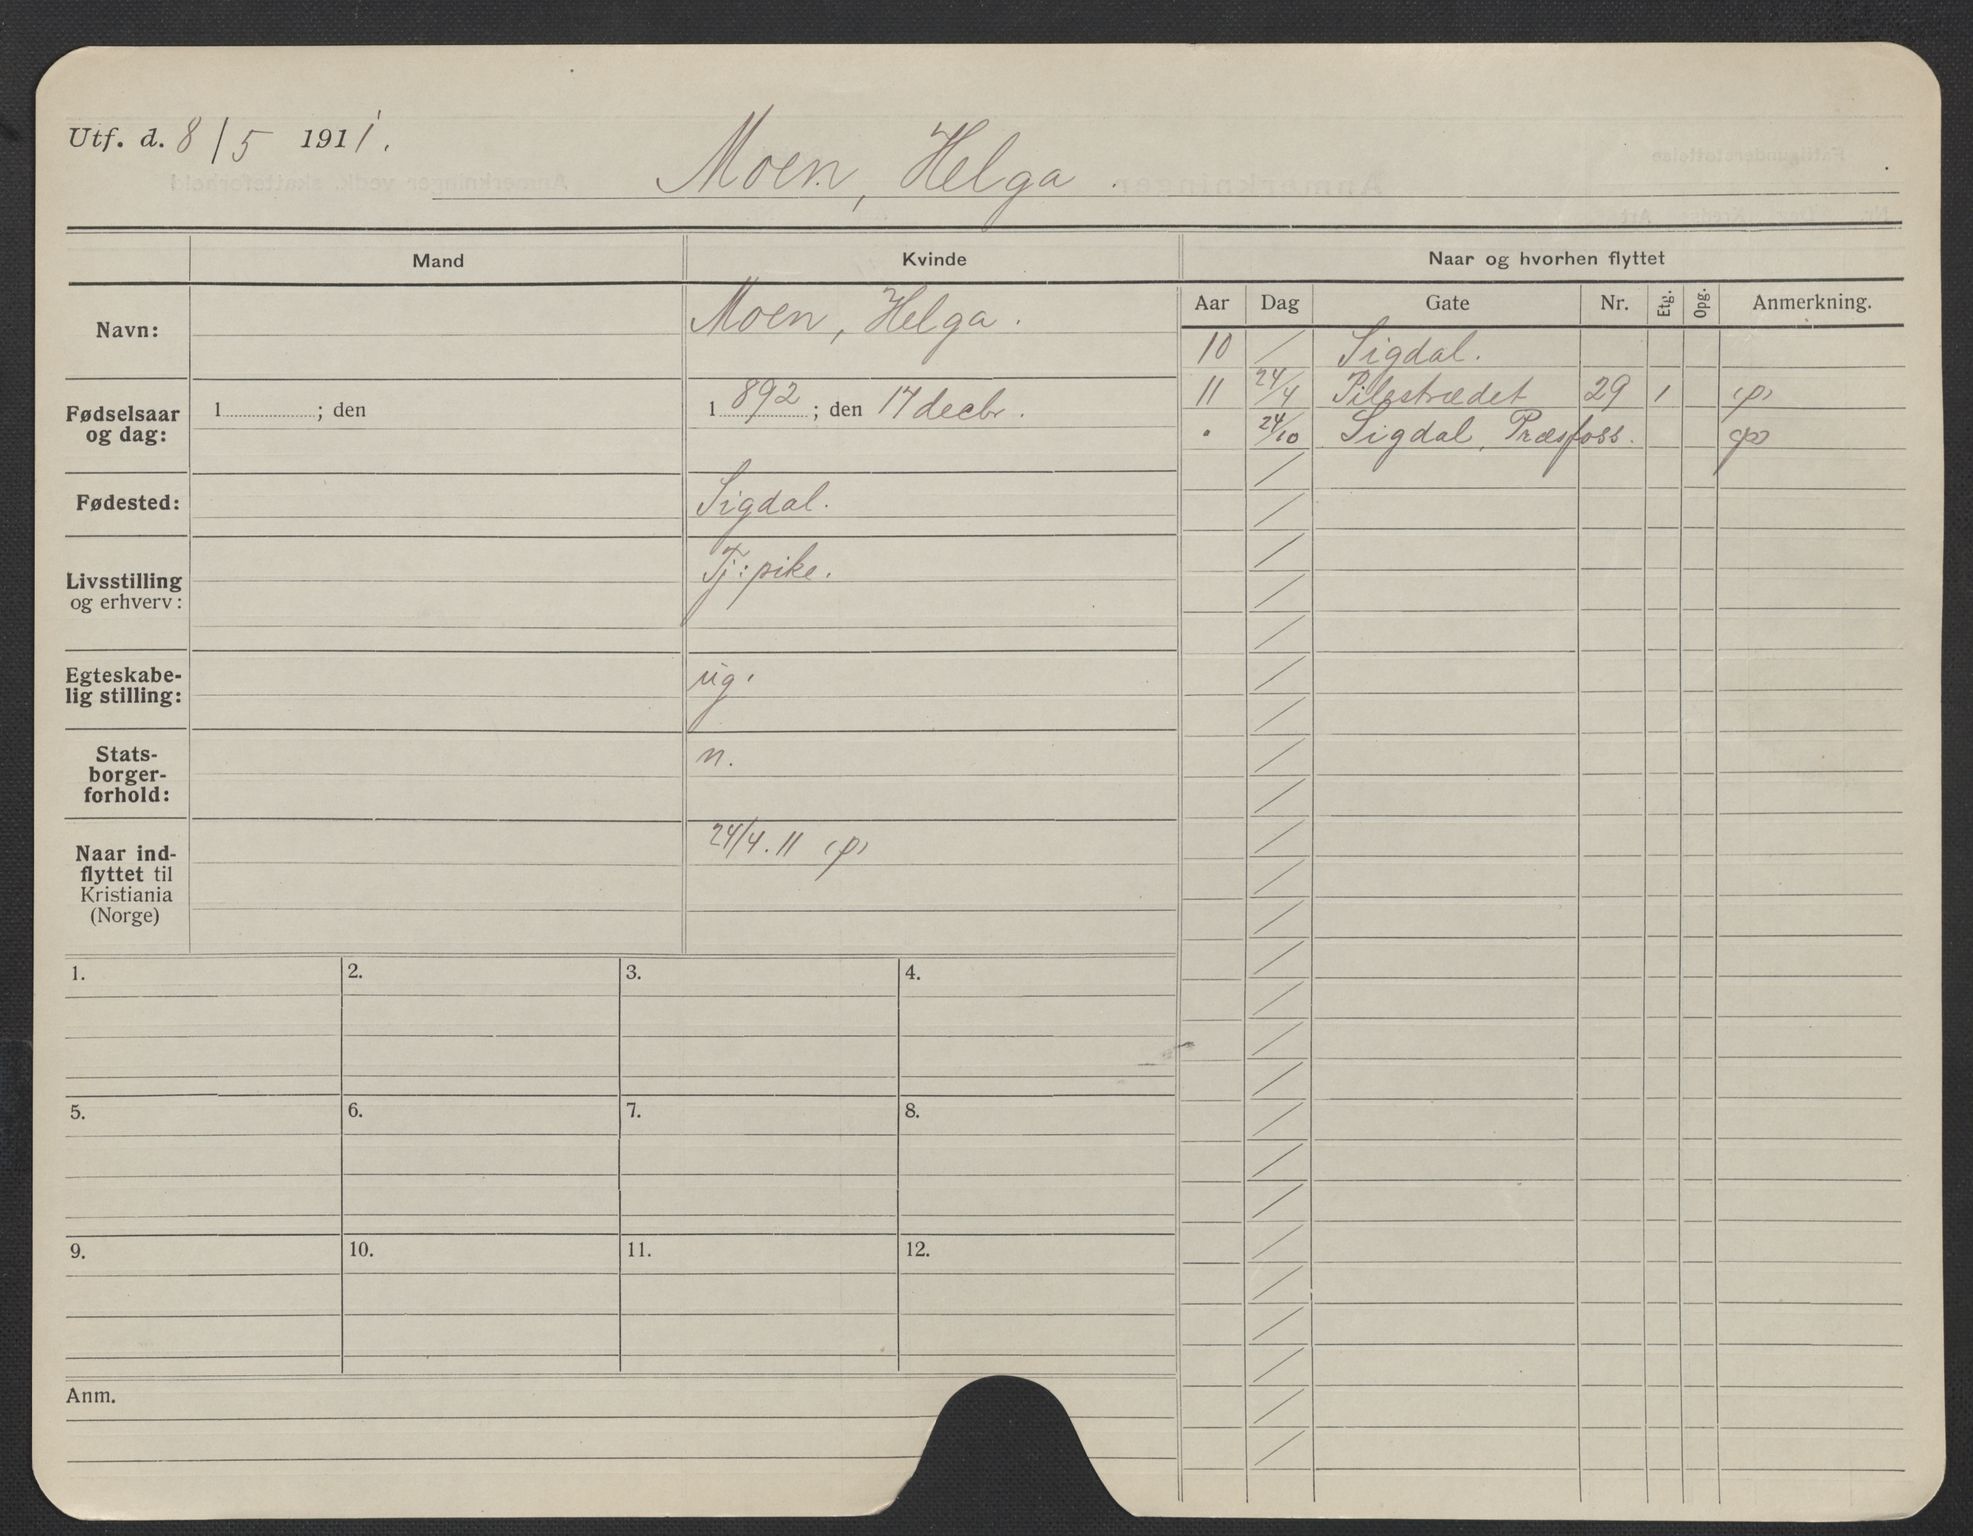 Utf. d. 8/5 1911.
Moen, Helga.
Mand
Kvinde
Naar og hvorhen flyttet
Navn:
Moen, Helga.
Fødselsaar
og dag:
1 ; den
1892 ; den 17 decbr.
Fødested:
Sigdal.
Livsstilling
og erhverv:
Tj: pike.
Egteskabe-
lig stilling:
ug.
Stats-
borger-
forhold:
n.
Naar ind-
flyttet til
Kristiania
(Norge)
24/4.11 (p)
Aar Dag Gate Nr. Etg. Opg. Anmerkning.
10 / Sigdal.
11 24/4 Pilestrædet 29 1 (p)
" 24/10 Sigdal, Præsfoss. (p)
1.
2.
3.
4.
5.
6.
7.
8.
9.
10.
11.
12.
Anm.